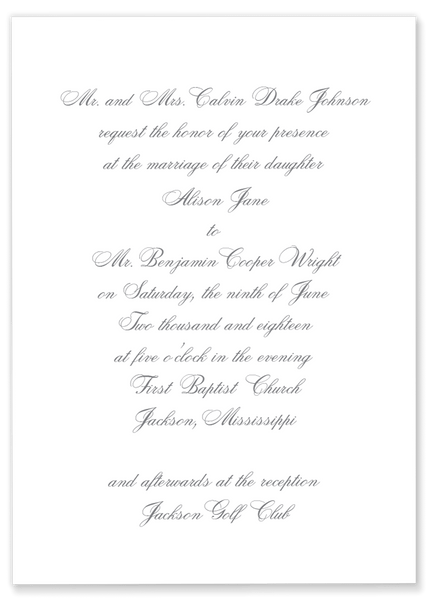 Mr. and Mrs. Calvin Drake Johnson
request the honor of your presence
at the marriage of their daughter
Alison Jane
to
Mr. Benjamin Cooper Wright
on Saturday, the ninth of June
Two thousand and eighteen
at five o'clock in the evening
First Baptist Church
Jackson, Mississippi
and afterwards at the reception
Jackson Golf Club